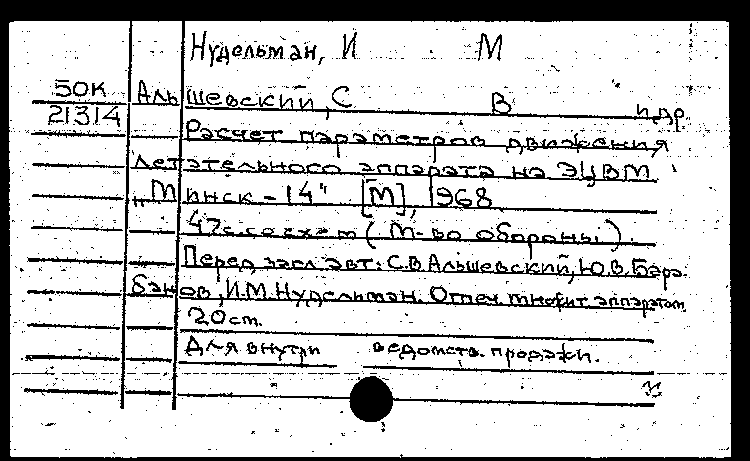 Нудельман, И М
50К Альшевский, С В и др.
21314 Расчет параметров движения
летательного аппарата на ЭЦВМ
"Минск-14" [М], 1968
47с. со схем (М-во обороны).
Перед загл. авт: С.В. Альшевский, Ю.В. Бара-
банов, И.М. Нудельман. Отпеч множит. аппаратом
20см.
Для внутри ведомств. продажи.